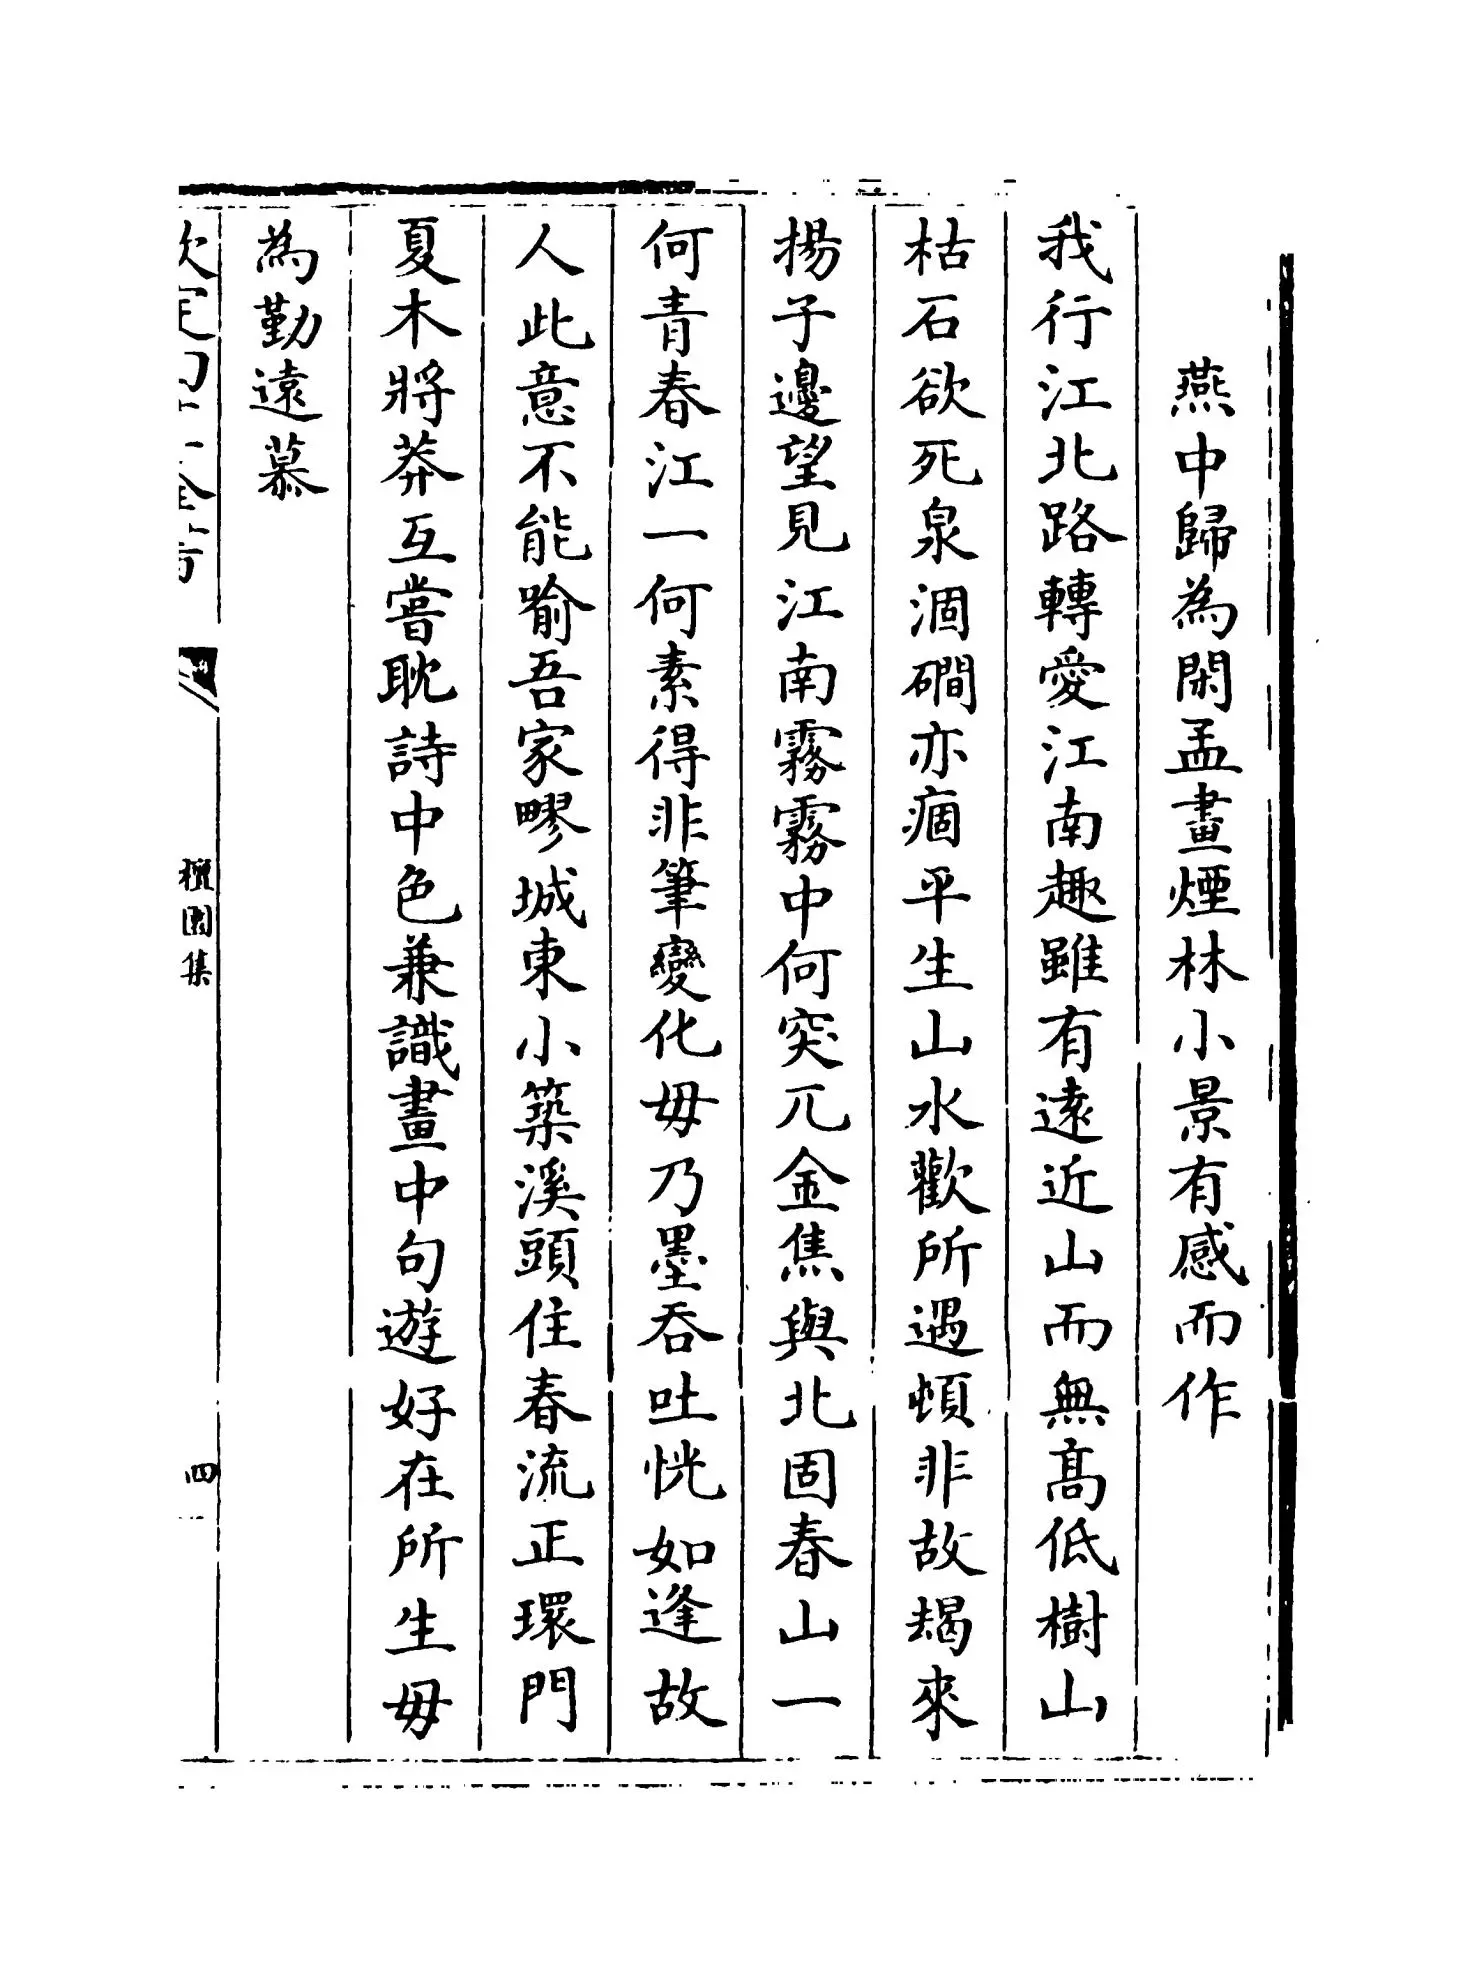 燕中歸為閑孟畫煙林小景有感而作
我行江北路轉愛江南趣雖有遠近山而無髙低樹山
枯石欲死泉涸磵亦痼平生山水歡所遇頓非故朅來
揚子邊望見江南霧霧中何突兀金焦與北固春山一
何青春江一何素得非筆變化毋乃墨吞吐恍如逢故
人此意不能喻吾家疁城東小築溪頭住春流正環門
夏木將莽互嘗耽詩中色兼識畫中句遊好在所生毋
為勤遠慕
檀園集
四